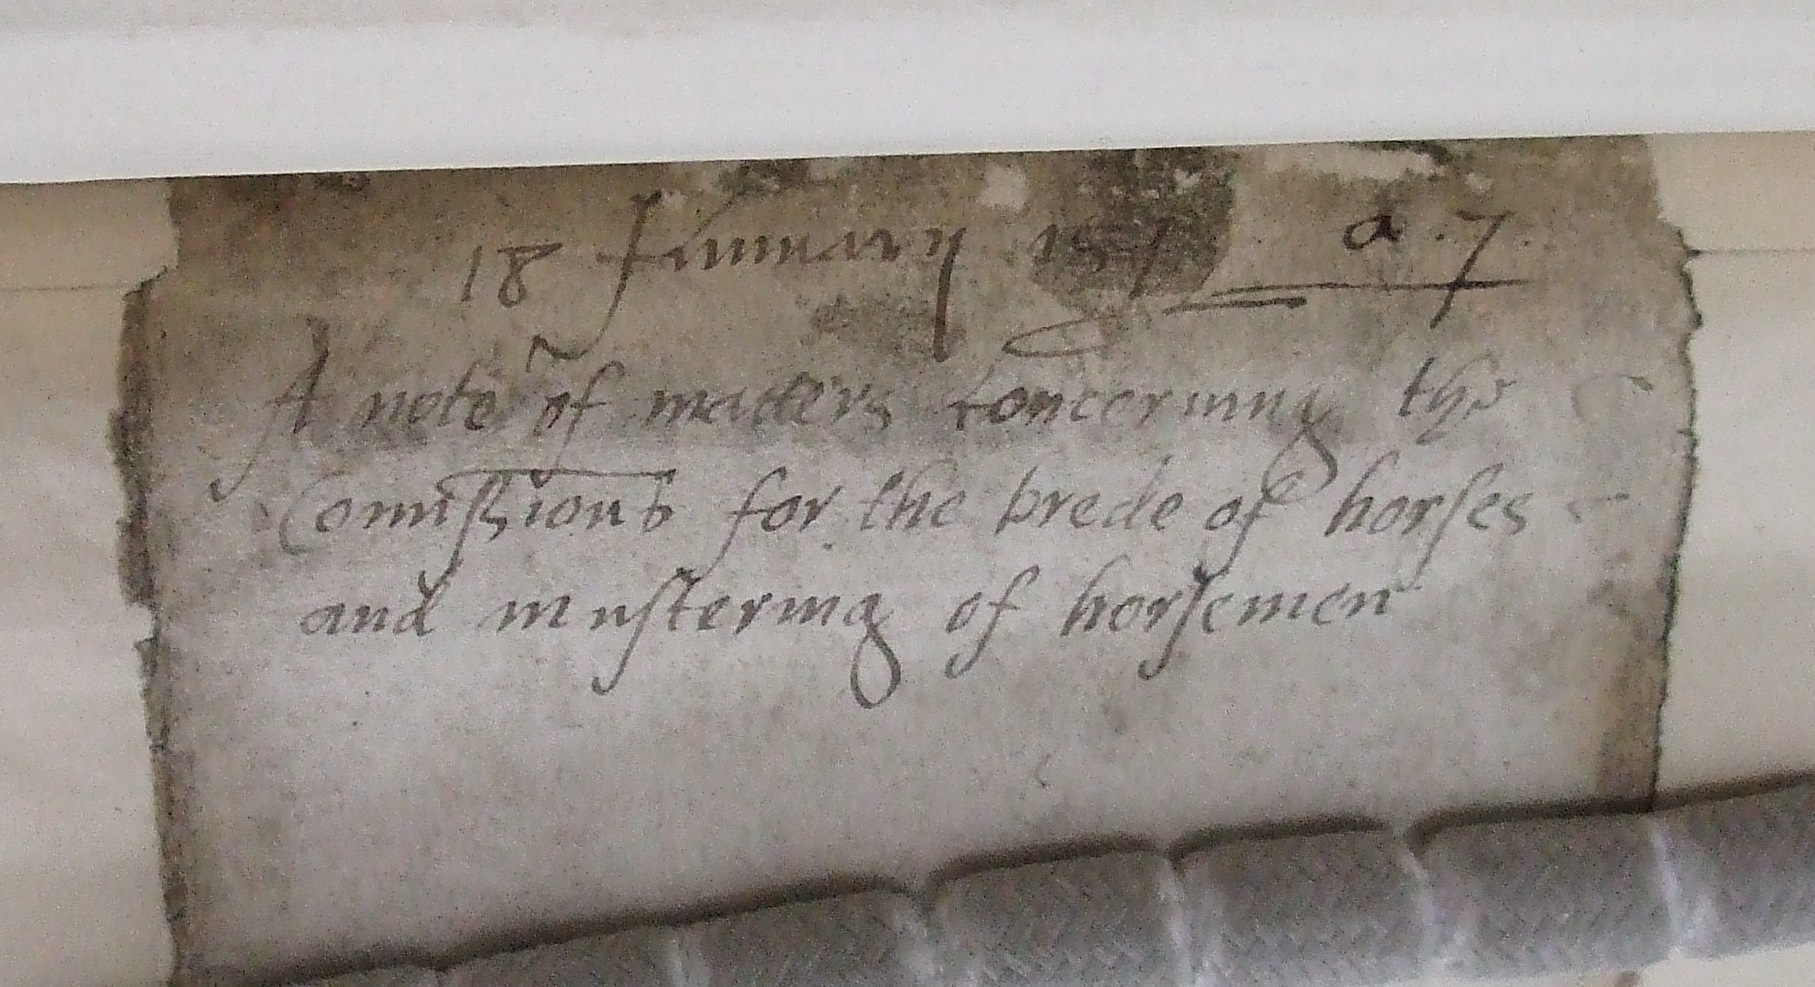 18 January 157 a. 7.
A note of matters concerning the
Comissions for the brede of horses
and mustering of horsemen